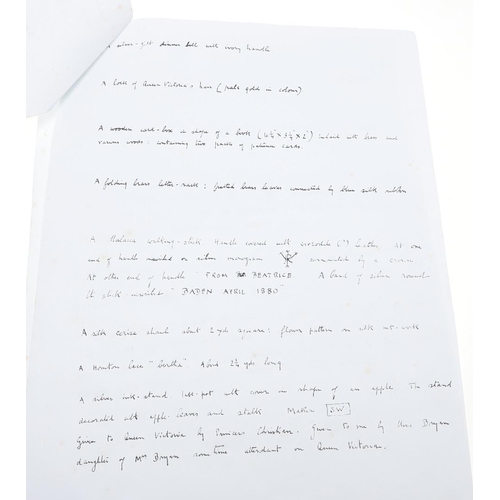 A silver-gilt dinner bell with ivory handle
A lock of Queen Victoria's hair (pale gold in colour)
A wooden card-box in shape of a book (4¾" x 3¾" x 2") inlaid with brass and
various woods. containing two packs of patience cards.
A folding brass letter-rack: fretted brass leaves connected by blue silk ribbon
A Malacca walking-stick. Handle covered with crocodile (?) leather. At one
end of handle a silver monogram surmounted by a crown
At other end of handle "FROM BEATRICE. A band of silver round
the stick inscribed "BADEN APRIL 1880"
A silk cerise shawl about 2 yds square: flower pattern in silk
A Honiton lace "bertha" About 2½ yds long
A silver ink-stand with cover in shape of an apple. The stand
decorated with apple-leaves and stalks Maker SW
Given to Queen Victoria by Princess Christian. Given to me by Miss Dryan
daughter of Mrs Dryan sometime attendant on Queen Victoria.